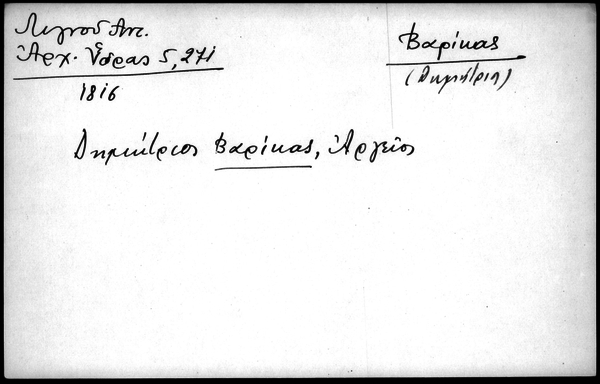 Λιγνοῦ Ἀντ.
Ἀρχ. Ὕδρας 5, 271
1816
Βαρίκας
(Δημήτρης)
Δημήτριος Βαρίκας, Ἀργεῖος